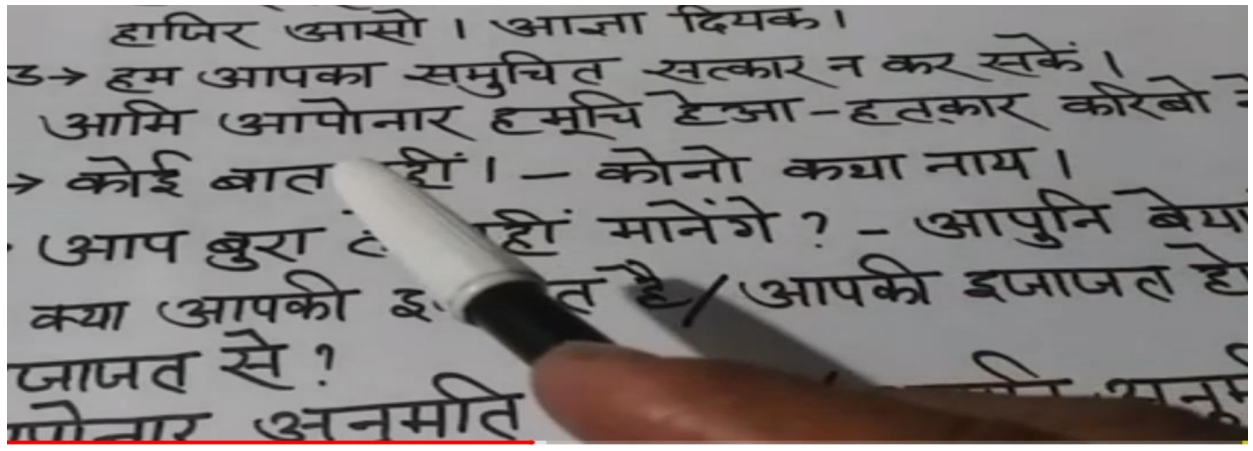 हाजिर आसो। आज्ञा दियक।
ड→ हम आपका समुचित सत्कार न कर सकें।
आमि आपोनार हमूचि हेआ-हतक़ार करिबो
→ कोई बात हीं। - कोनो कथा नाय।
आप बुरा हीं मानेंगे? - आपुनि बेया
क्या आपकी है/आपकी इजाजत हो
जाजत से?
अनुमति